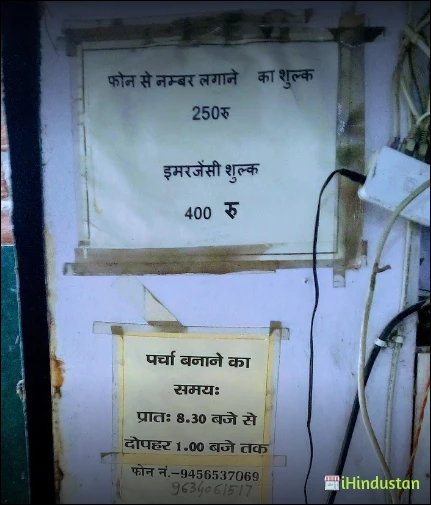 फोन से नम्बर लगाने का शुल्क
250रु
इमरजेंसी शुल्क
400 रु
पर्चा बनाने का
समयः
प्रातः 8.30 बजे से
दोपहर 1.00 बजे तक
फोन नं.-9456537069
iHindustan